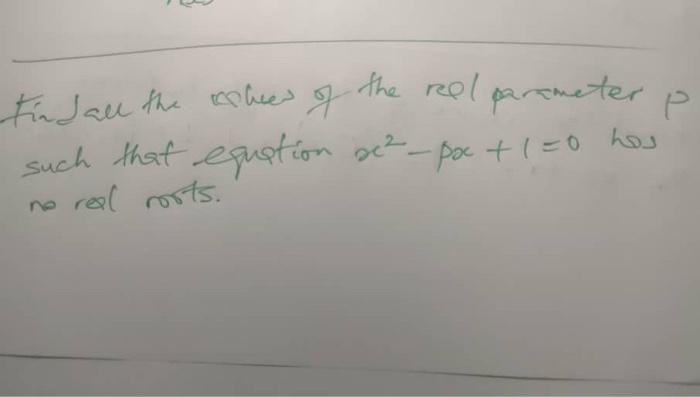 Find all the values of the real parameter p
such that equation x² - px + 1 = 0 has
no real roots.